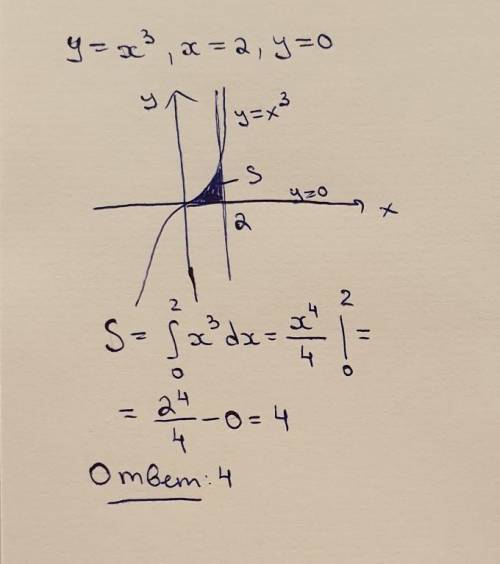 y = x³, x = 2, y = 0
y
y=x³
S
y=0
2
x
S = ∫₀² x³ dx = x⁴/4 |₀² =
= 2⁴/4 − 0 = 4
Ответ: 4